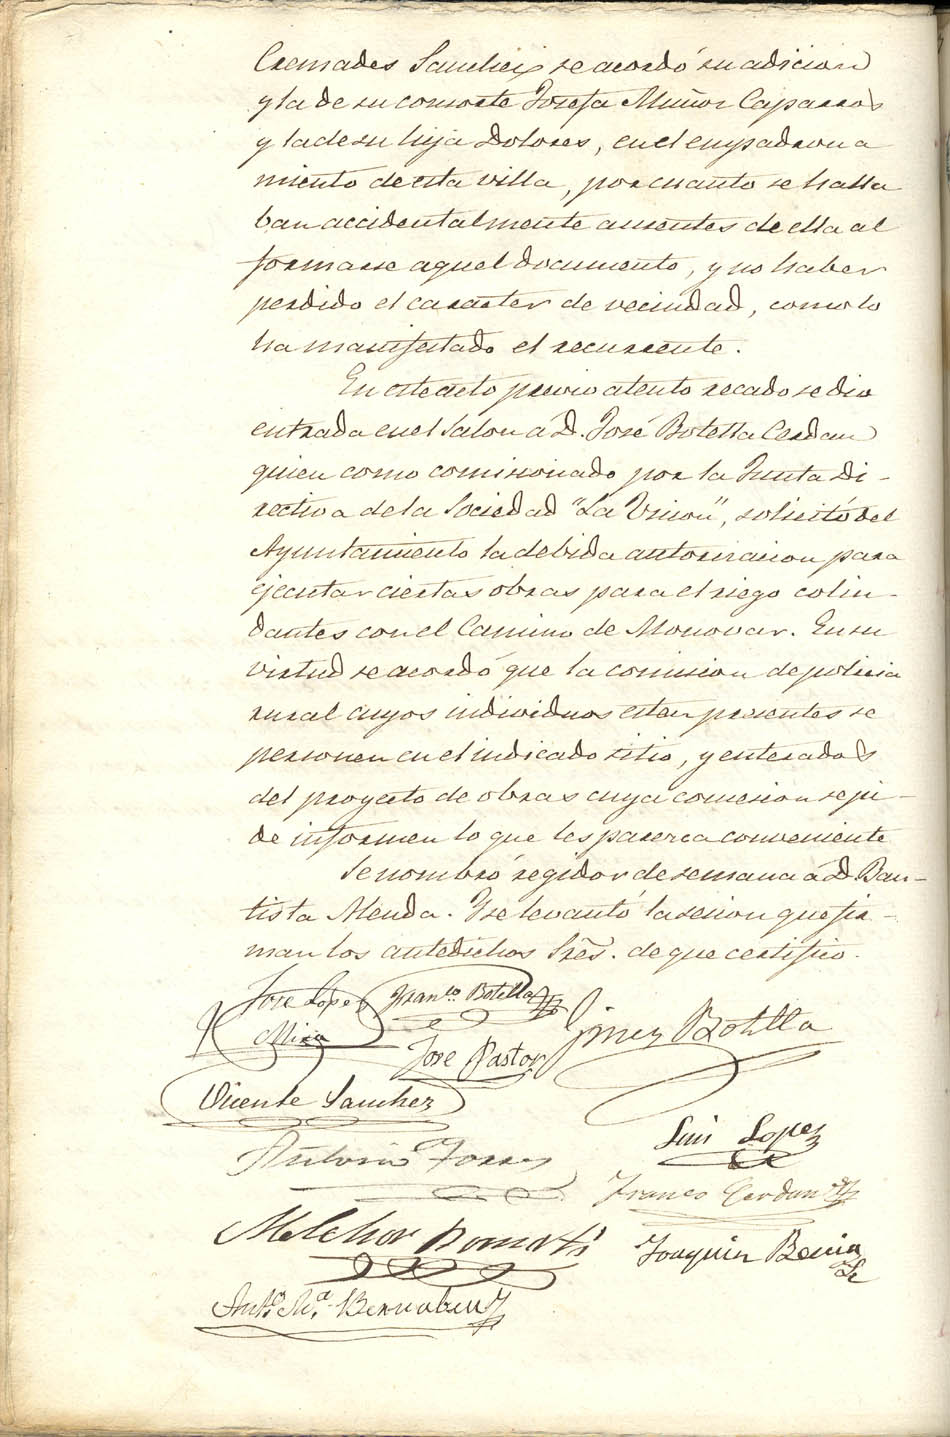 Cremades Sanchez, se acordó su adicion
y la de su consorte Josefa Muñoz Caparros
y la de su hija Dolores, en el empadrona
miento de esta villa, por cuanto se halla
ban accidentalmente ausentes de ella al
formarse aquel documento, y no haber
perdido el caracter de vecindad, como lo
ha manifestado el recurrente.
En este acto previo atento recado se dio
entrada en el Salon á D. José Botella Cerdan
quien como comisionado por la Junta Di-
rectiva de la Sociedad "La Union", solicitó del
Ayuntamiento la debida autorizacion para
ejecutar ciertas obras para el riego colin-
dantes con el Camino de Monovar. En su
virtud se acordó que la comision de policia
rural cuyos individuos estan presentes se
personen en el indicado sitio, y enterados
del proyecto de obras cuya concesion se pi-
de informen lo que les parezca conveniente
Se nombró regidor de semana á D. Bau-
tista Alenda. Y se levantó la sesion que fir-
man los antedichos Sres. de que certifico.
Jose Lopez Franco Botella
Mira
Jose Pastor Gines Botella
Vicente Sanchez
Luis Lopez
Antonio Torres
Franco Cerdan
Melchor
Joaquin
Anto Ma Bernabeu